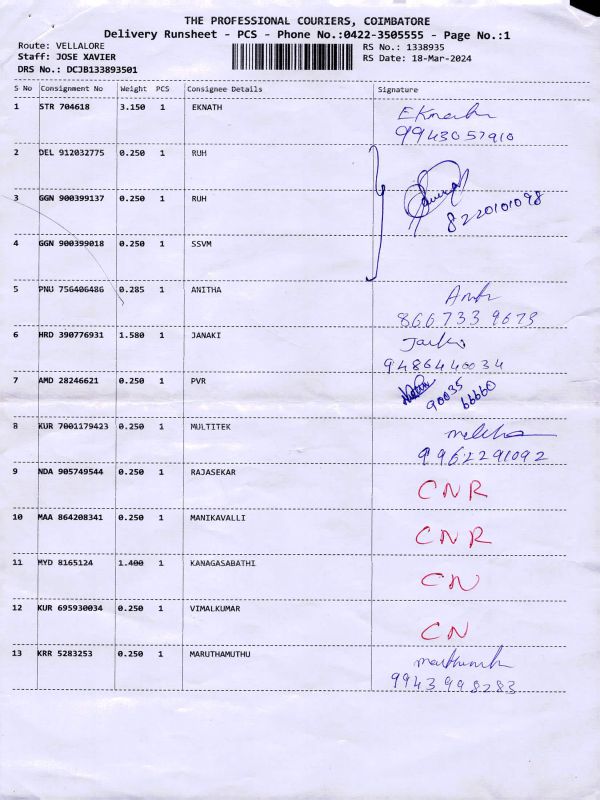 THE PROFESSIONAL COURIERS, COIMBATORE
Delivery Runsheet - PCS - Phone No.:0422-3505555 - Page No.:1
Route: VELLALORE RS No.: 1338935
Staff: JOSE XAVIER RS Date: 18-Mar-2024
DRS No.: DCJB133893501
S No Consignment No Weight PCS Consignee Details Signature
1 STR 704618 3.150 1 EKNATH
9943057910
2 DEL 912032775 0.250 1 RUH
3 GGN 900399137 0.250 1 RUH
8220101098
4 GGN 900399018 0.250 1 SSVM
5 PNU 756406486 0.285 1 ANITHA
8667339679
6 HRD 390776931 1.580 1 JANAKI
9486440034
7 AMD 28246621 0.250 1 PVR
90035
66660
8 KUR 7001179423 0.250 1 MULTITEK
9962291092
9 NDA 905749544 0.250 1 RAJASEKAR CNR
10 MAA 864208341 0.250 1 MANIKAVALLI CNR
11 MYD 8165124 1.400 1 KANAGASABATHI CN
12 KUR 695930034 0.250 1 VIMALKUMAR CN
13 KRR 5283253 0.250 1 MARUTHAMUTHU
9943998283